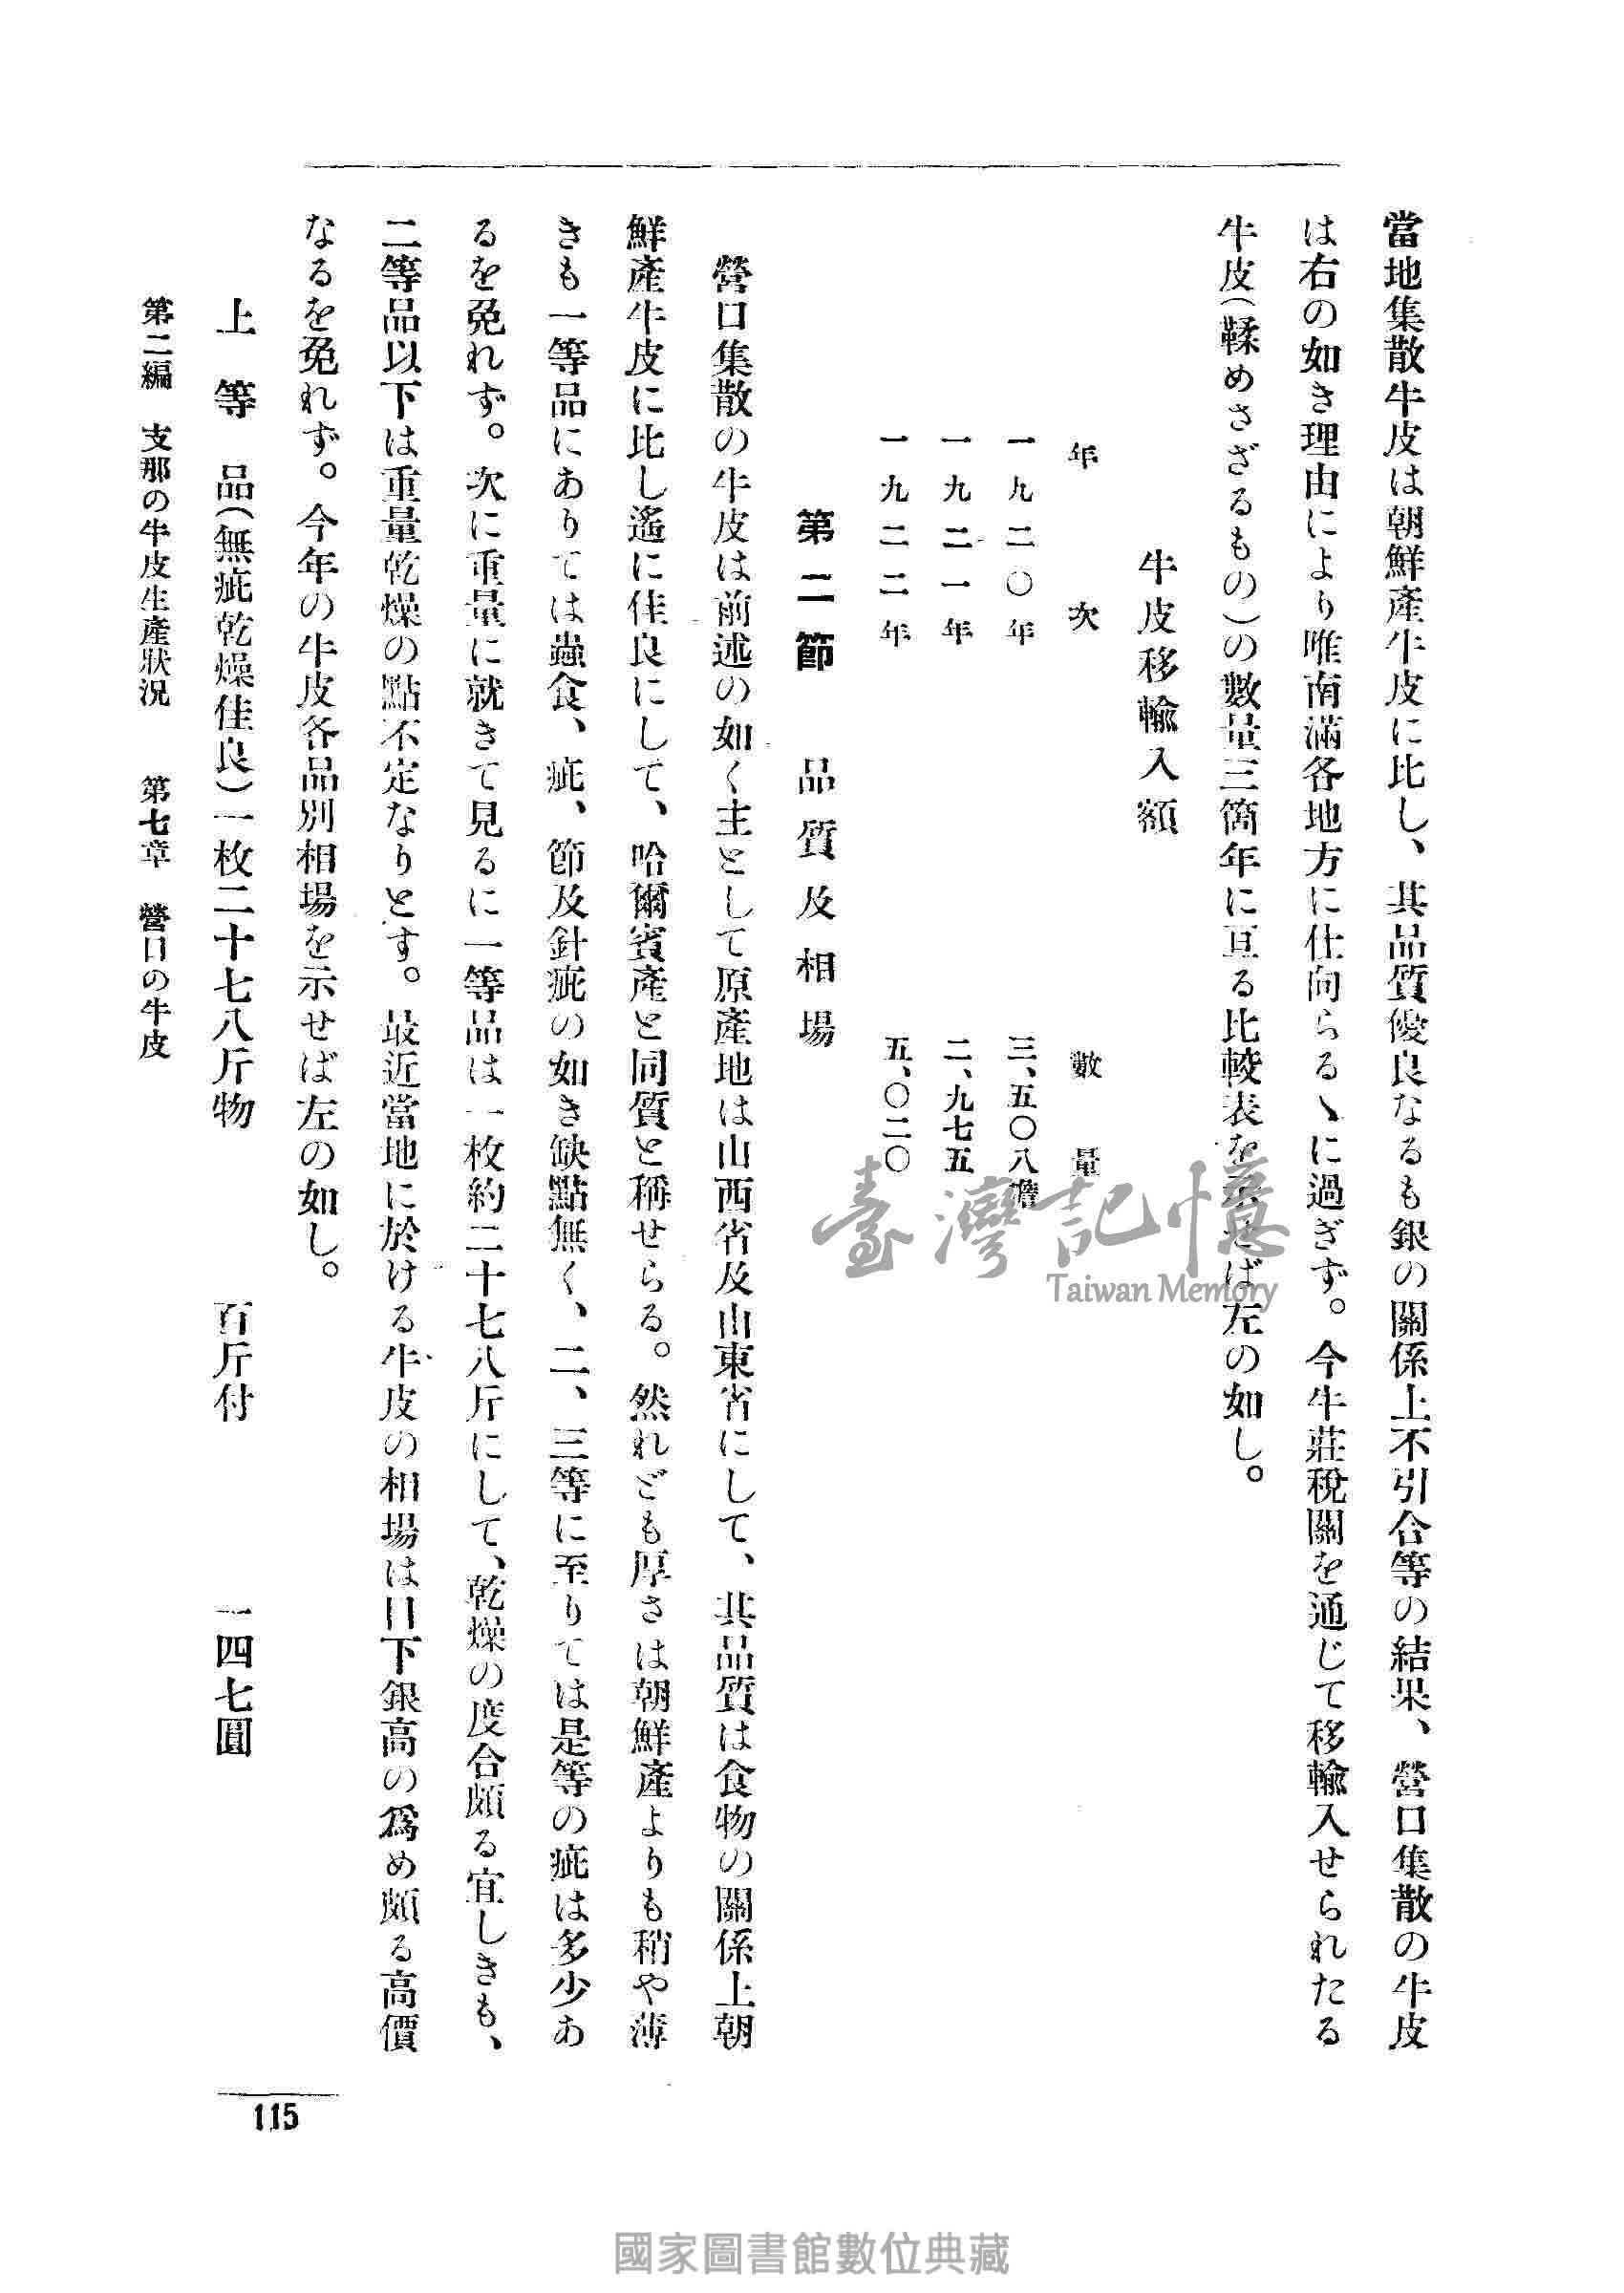 當地集散牛皮は朝鮮產牛皮に比し、其品質優良なるも銀の關係上不引合等の結果、營口集散の牛皮
は右の如き理由により唯南滿各地方に仕向らるゝに過ぎず。今牛莊稅關を通じて移輸入せられたる
牛皮(鞣めさざるもの)の數量三箇年に亙る比較表を示せば左の如し。
牛皮移輸入額
年次 數量
一九二〇年 三、五〇八擔
一九二一年 二、九七五
一九二二年 五、〇二〇
第二節 品質及相場
營口集散の牛皮は前述の如く主として原產地は山西省及山東省にして、其品質は食物の關係上朝
鮮產牛皮に比し遙に佳良にして、哈爾賓產と同質と稱せらる。然れども厚さは朝鮮產よりも稍や薄
きも一等品にありては蟲食、疵、節及針疵の如き缺點無く、二、三等に至りては是等の疵は多少あ
るを免れず。次に重量に就きて見るに一等品は一枚約二十七八斤にして、乾燥の度合頗る宜しきも、
二等品以下は重量乾燥の點不定なりとす。最近當地に於ける牛皮の相場は目下銀高の爲め頗る高價
なるを免れず。今年の牛皮各品別相場を示せば左の如し。
上等品(無疵乾燥佳良)一枚二十七八斤物 百斤付 一四七圓
第二編 支那の牛皮生產狀況 第七章 營口の牛皮
115
臺灣記憶
Taiwan Memory
國家圖書館數位典藏